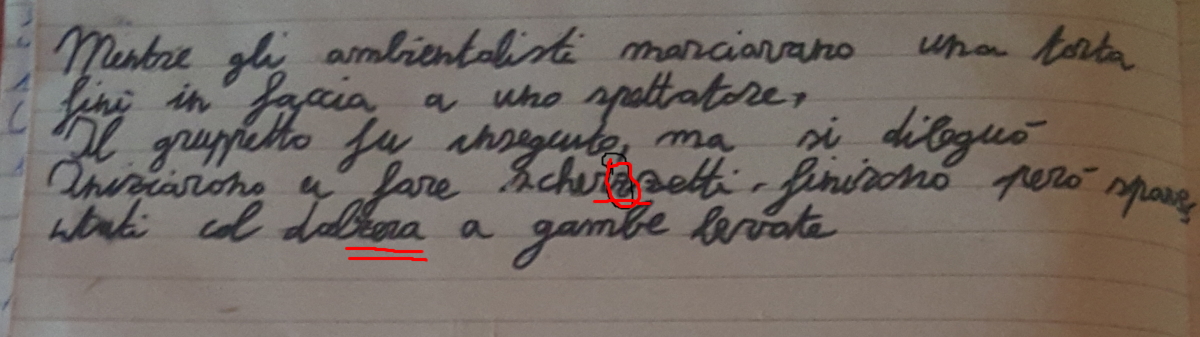 Mentre gli ambientalisti marciavano una torta
finì in faccia a uno spettatore,
Il gruppetto fu inseguito, ma si dileguò
Iniziarono a fare scherzetti. finirono però spave
ntati col dalzora a gambe levate